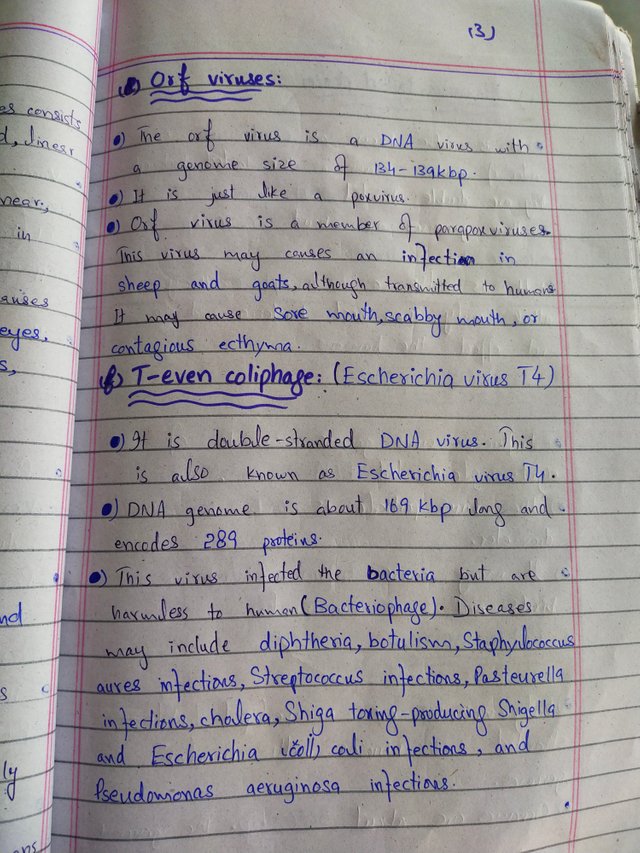 (3)
e) Orf viruses:
•) The orf virus is a DNA virus with
a genome size of 134-139kbp.
•) It is just like a poxvirus.
•) Orf virus is a member of parapoxviruses.
This virus may causes an infection in
sheep and goats, although transmitted to humans
It may cause sore mouth, scabby mouth, or
contagious ecthyma.
f) T-even coliphage: (Escherichia virus T4)
•) It is double-stranded DNA virus. This
is also known as Escherichia virus T4.
•) DNA genome is about 169 kbp long and
encodes 289 proteins.
•) This virus infected the bacteria but are
harmless to human (Bacteriophage). Diseases
may include diphtheria, botulism, Staphylococcus
aures infections, Streptococcus infections, Pasteurella
infections, cholera, Shiga toxing-producing Shigella
and Escherichia coli infections, and
Pseudomonas aeruginosa infections.
es consists
d, linear
near,
in
auses
eyes,
s,
nd
s
ly
ons